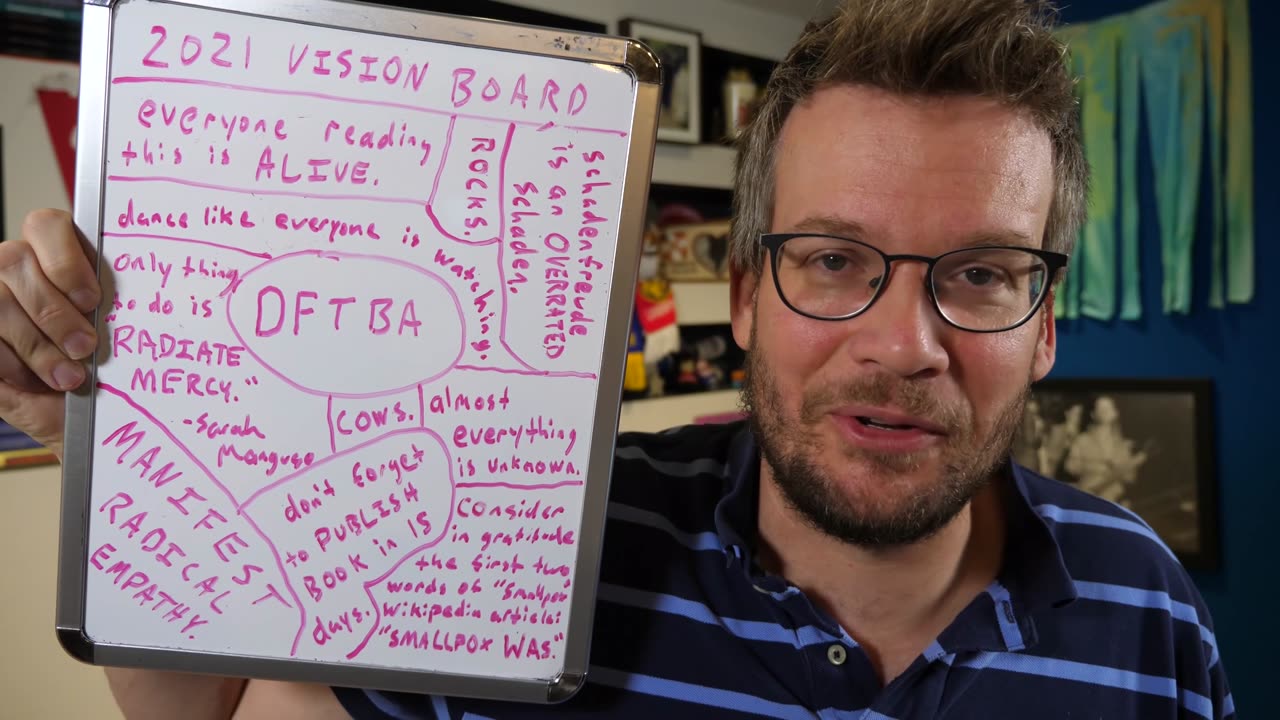 2021 VISION BOARD
everyone reading
this is ALIVE.
ROCKS.
schadenfreude
is an OVERRATED
schaden.
dance like everyone is watching.
only thing
to do is
"RADIATE
MERCY."
-Sarah
Manguso
DFTBA
COWS.
almost
everything
is unknown.
MANIFEST
RADICAL
EMPATHY.
don't forget
to PUBLISH
BOOK in 15
days.
Consider
in gratitude
the first two
words of "Smallpox"
wikipedia article:
"SMALLPOX WAS."